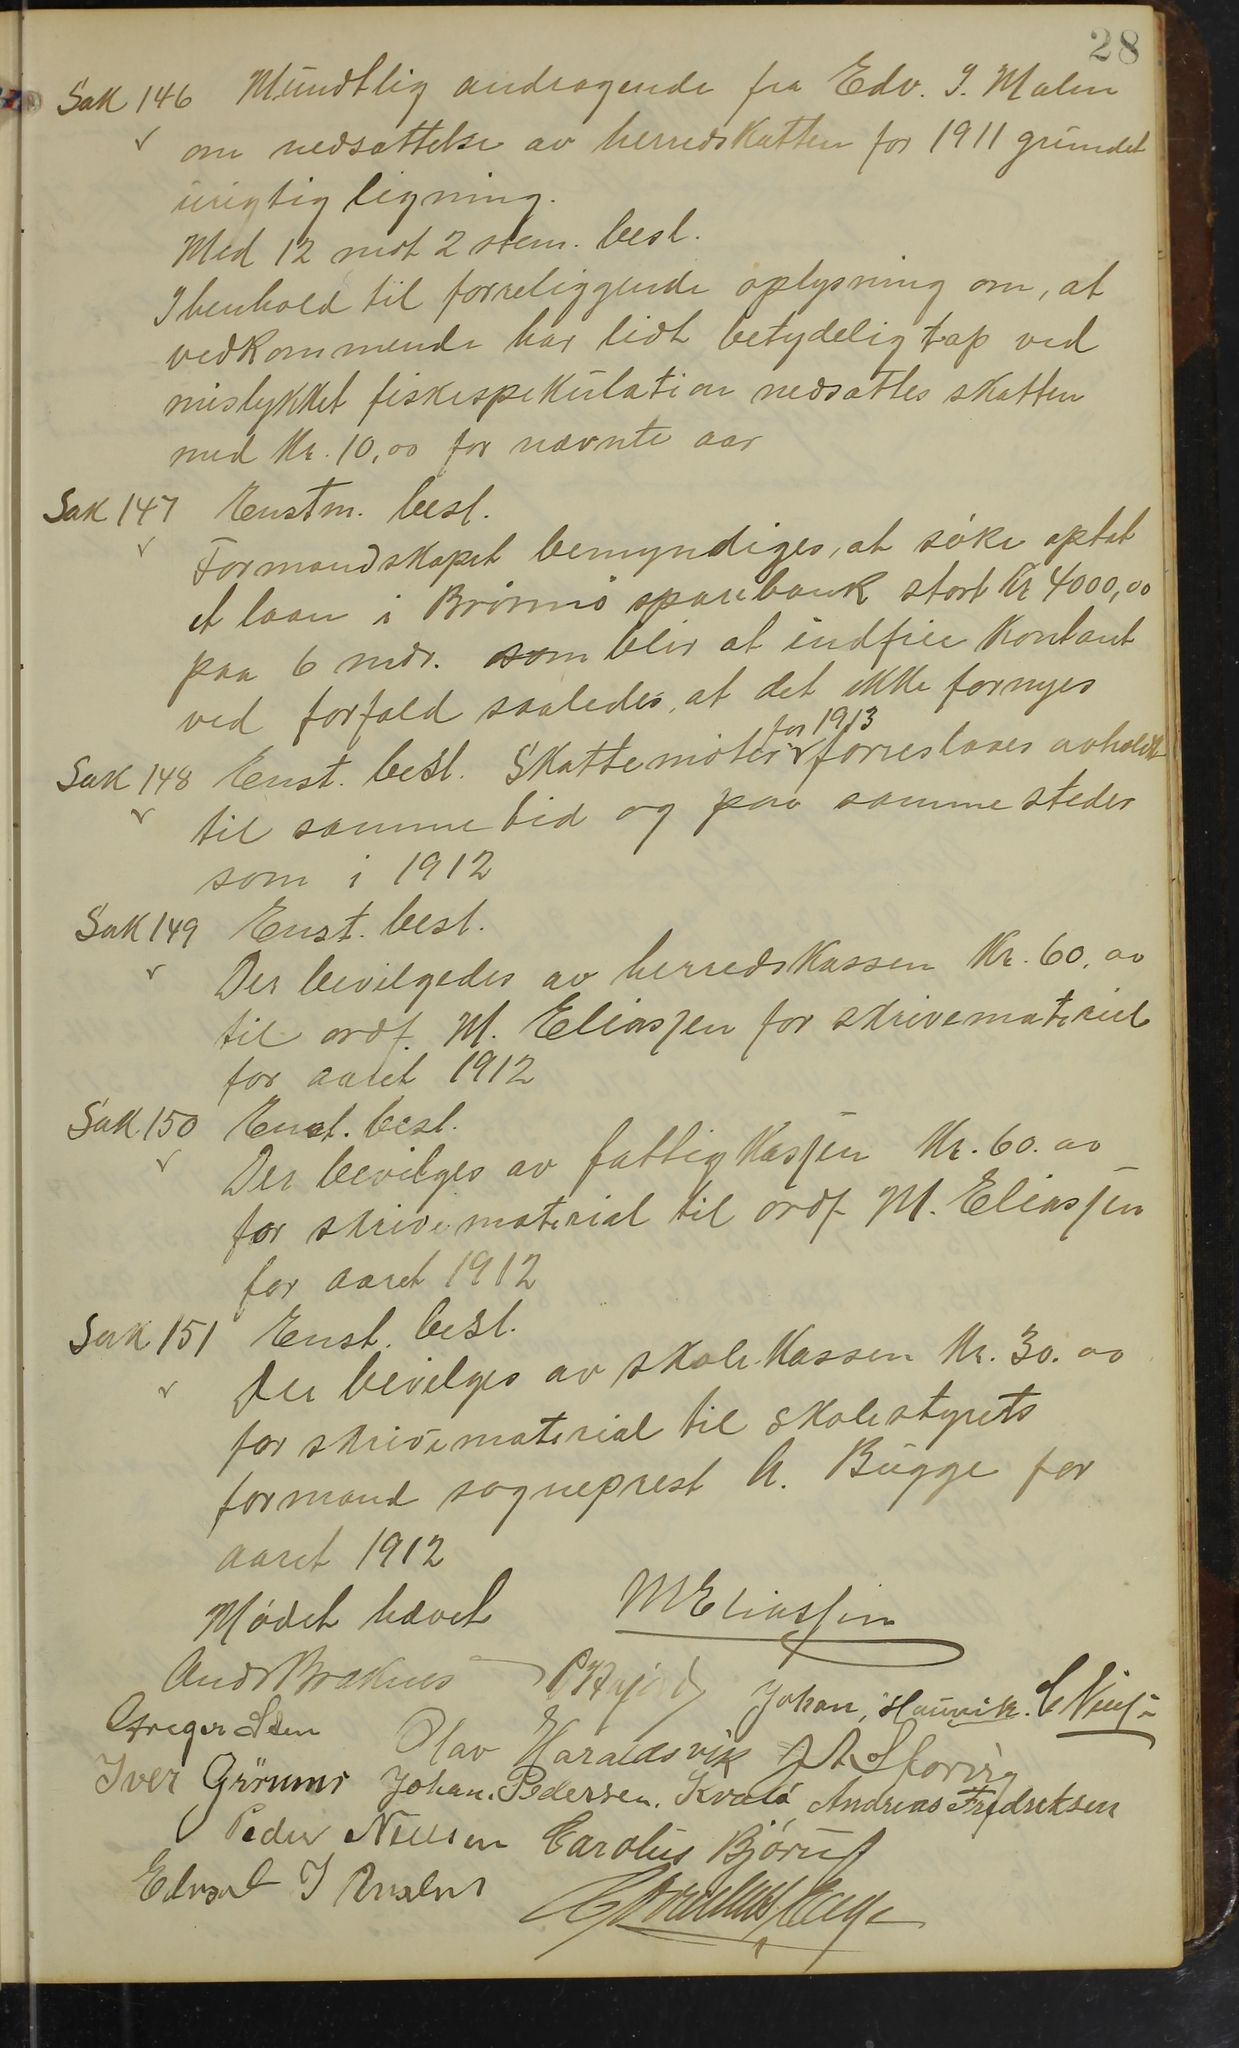 28
Sak 146 Mundtlig andragende fra Edv. I. Malm
om nedsættelse av herredskatten for 1911 grundet
urigtig ligning.
Med 12 mot 2 stem. besl.
I henhold til forreliggende oplysning om, at
vedkommende har lidt betydelig tap ved
mislykket fiskespekulation nedsattes skatten
med Kr. 10,00 for nævnte aar
Sak 147 Enstm. besl.
Formandskapet bemyndiges, at søke optat
et laan i Brønnø sparebank stort Kr 4000,00
paa 6 mdr. som blir at indfrie kontant
ved forfald saaledes, at det ikke fornyes
for 1913
Sak 148 Enst. besl. Skattemøter forreslaaes avholdt
til samme tid og paa samme steder
som i 1912
Sak 149 Enst. besl.
Der bevilgedes av herredskassen Kr. 60.00
til ordf. M. Eliassen for skrivematerial
for aaret 1912
Sak 150 Enst. besl.
Der bevilges av fattigkassen Kr. 60.00
for skrivematerial til ordf M. Eliassen
for aaret 1912
Sak 151 Enst. besl.
Der bevilges av skolekassen Kr. 30.00
for skrivematerial til skolestyrets
formand sogneprest A. Bugge for
aaret 1912
Mødet hævet M Eliassen
And Johan
Greger Olav Haraldsvik
Iver Johan. Pedersen. Kvalø Andreas Fredriksen
Peder Nilsen Carolus
Edvard I